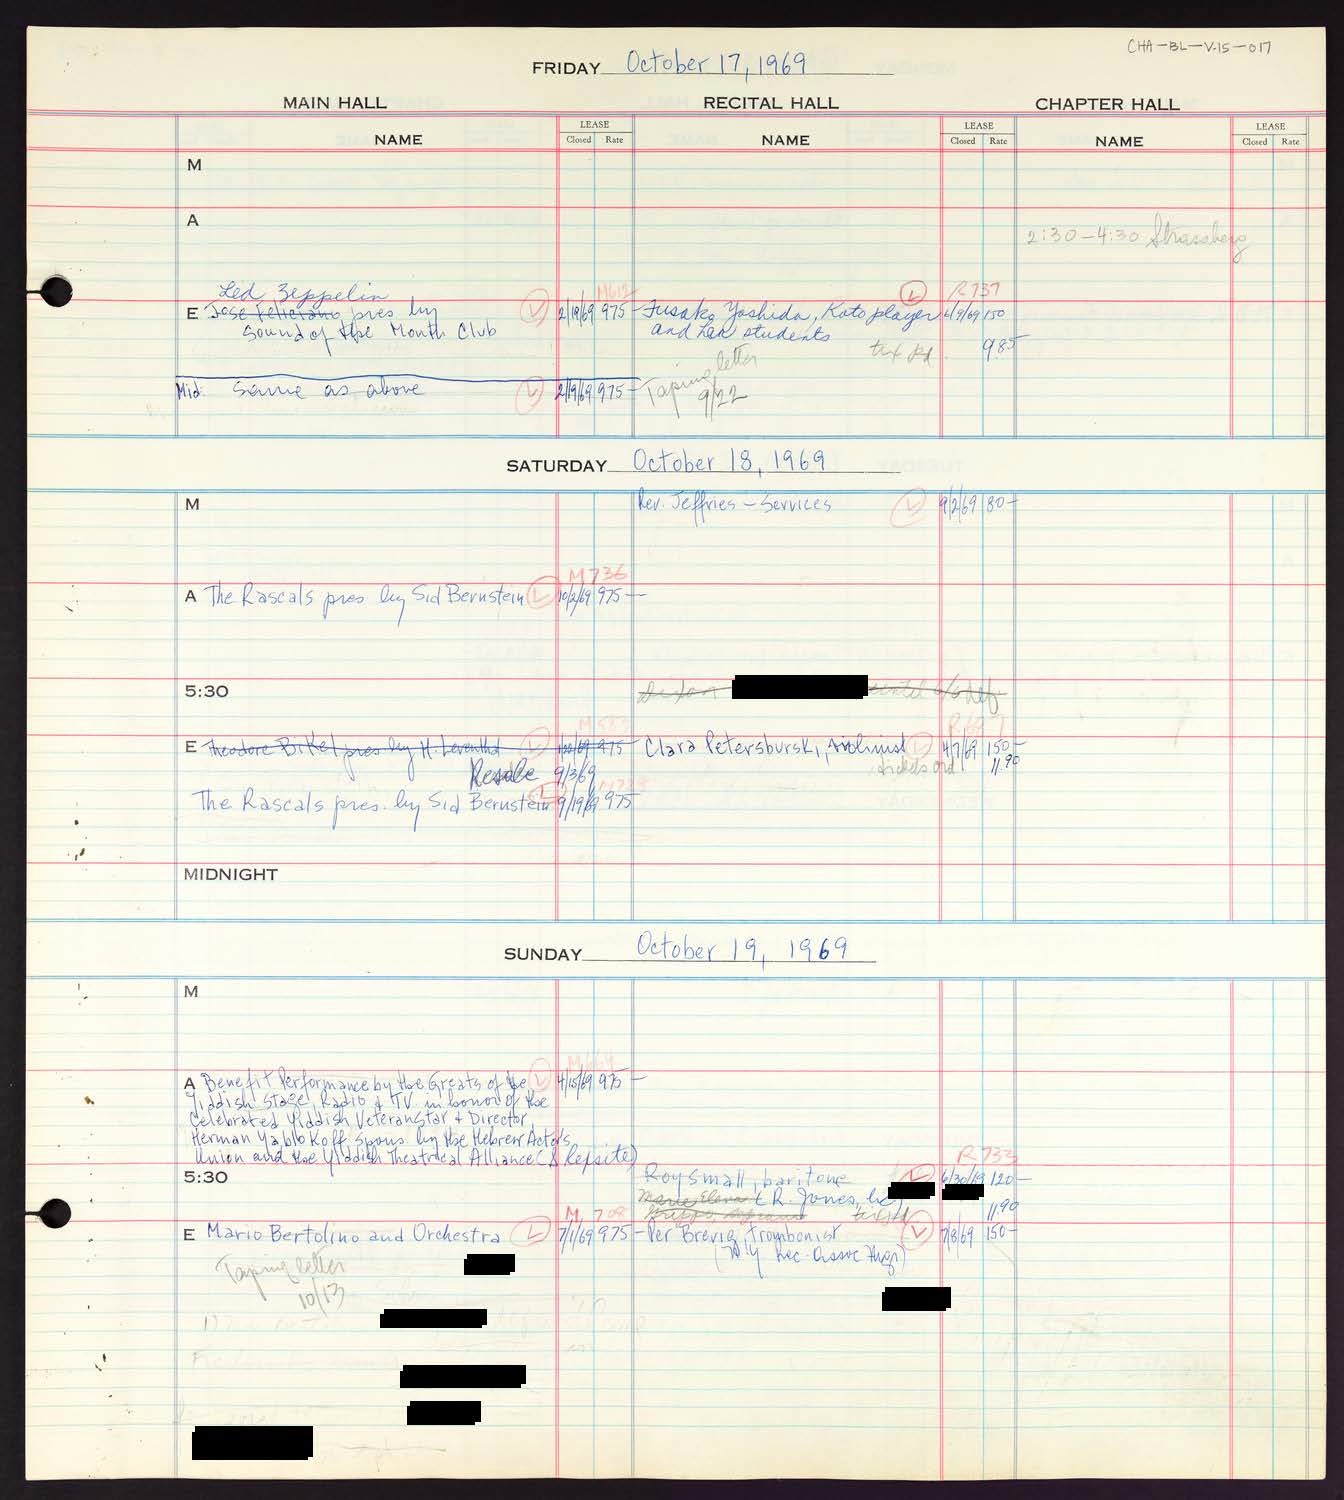 CHA-BL-V.15-017
FRIDAY October 17, 1969
MAIN HALL RECITAL HALL CHAPTER HALL
NAME LEASE Closed Rate NAME LEASE Closed Rate NAME LEASE Closed Rate
M
A
2:30-4:30 Strassberg
Led Zeppelin M612 L R737
E Jose Feliciano pres by L 2/19/69 975- Fusako Yoshida, Koto player 6/9/69 150
Sound of the Month Club and her students
9.85
Taping letter
Mid. Same as above L 2/19/69 975- 9/22
SATURDAY October 18, 1969
M Rev. Jeffries - Services L 9/2/69 80-
M736
A The Rascals pres by Sid Bernstein L 10/2/69 975-
5:30 Dixon
E Theodore Bikel pres by H. Leventhal L 975 Clara Petersburski, violinist L 4/7/69 150-
tickets ord 11.90
Resale 9/3/69
The Rascals pres. by Sid Bernstein L 9/19/69 975
MIDNIGHT
SUNDAY October 19, 1969
M
A Benefit Performance by the Greats of the L 4/15/69 975-
Yiddish Stage, Radio & TV in honor of the
Celebrated Yiddish Veteran Star & Director,
Herman Yablokoff, spons by the Hebrew Actor's
Union and the Yiddish Theatrical Alliance
R 733
5:30 Roy Small, baritone L 6/30/69 120-
R. Jones,
11.90
M 708
E Mario Bertolino and Orchestra L 7/1/69 975- Per Brevig, trombonist L 7/8/69 150-
Taping letter
10/13